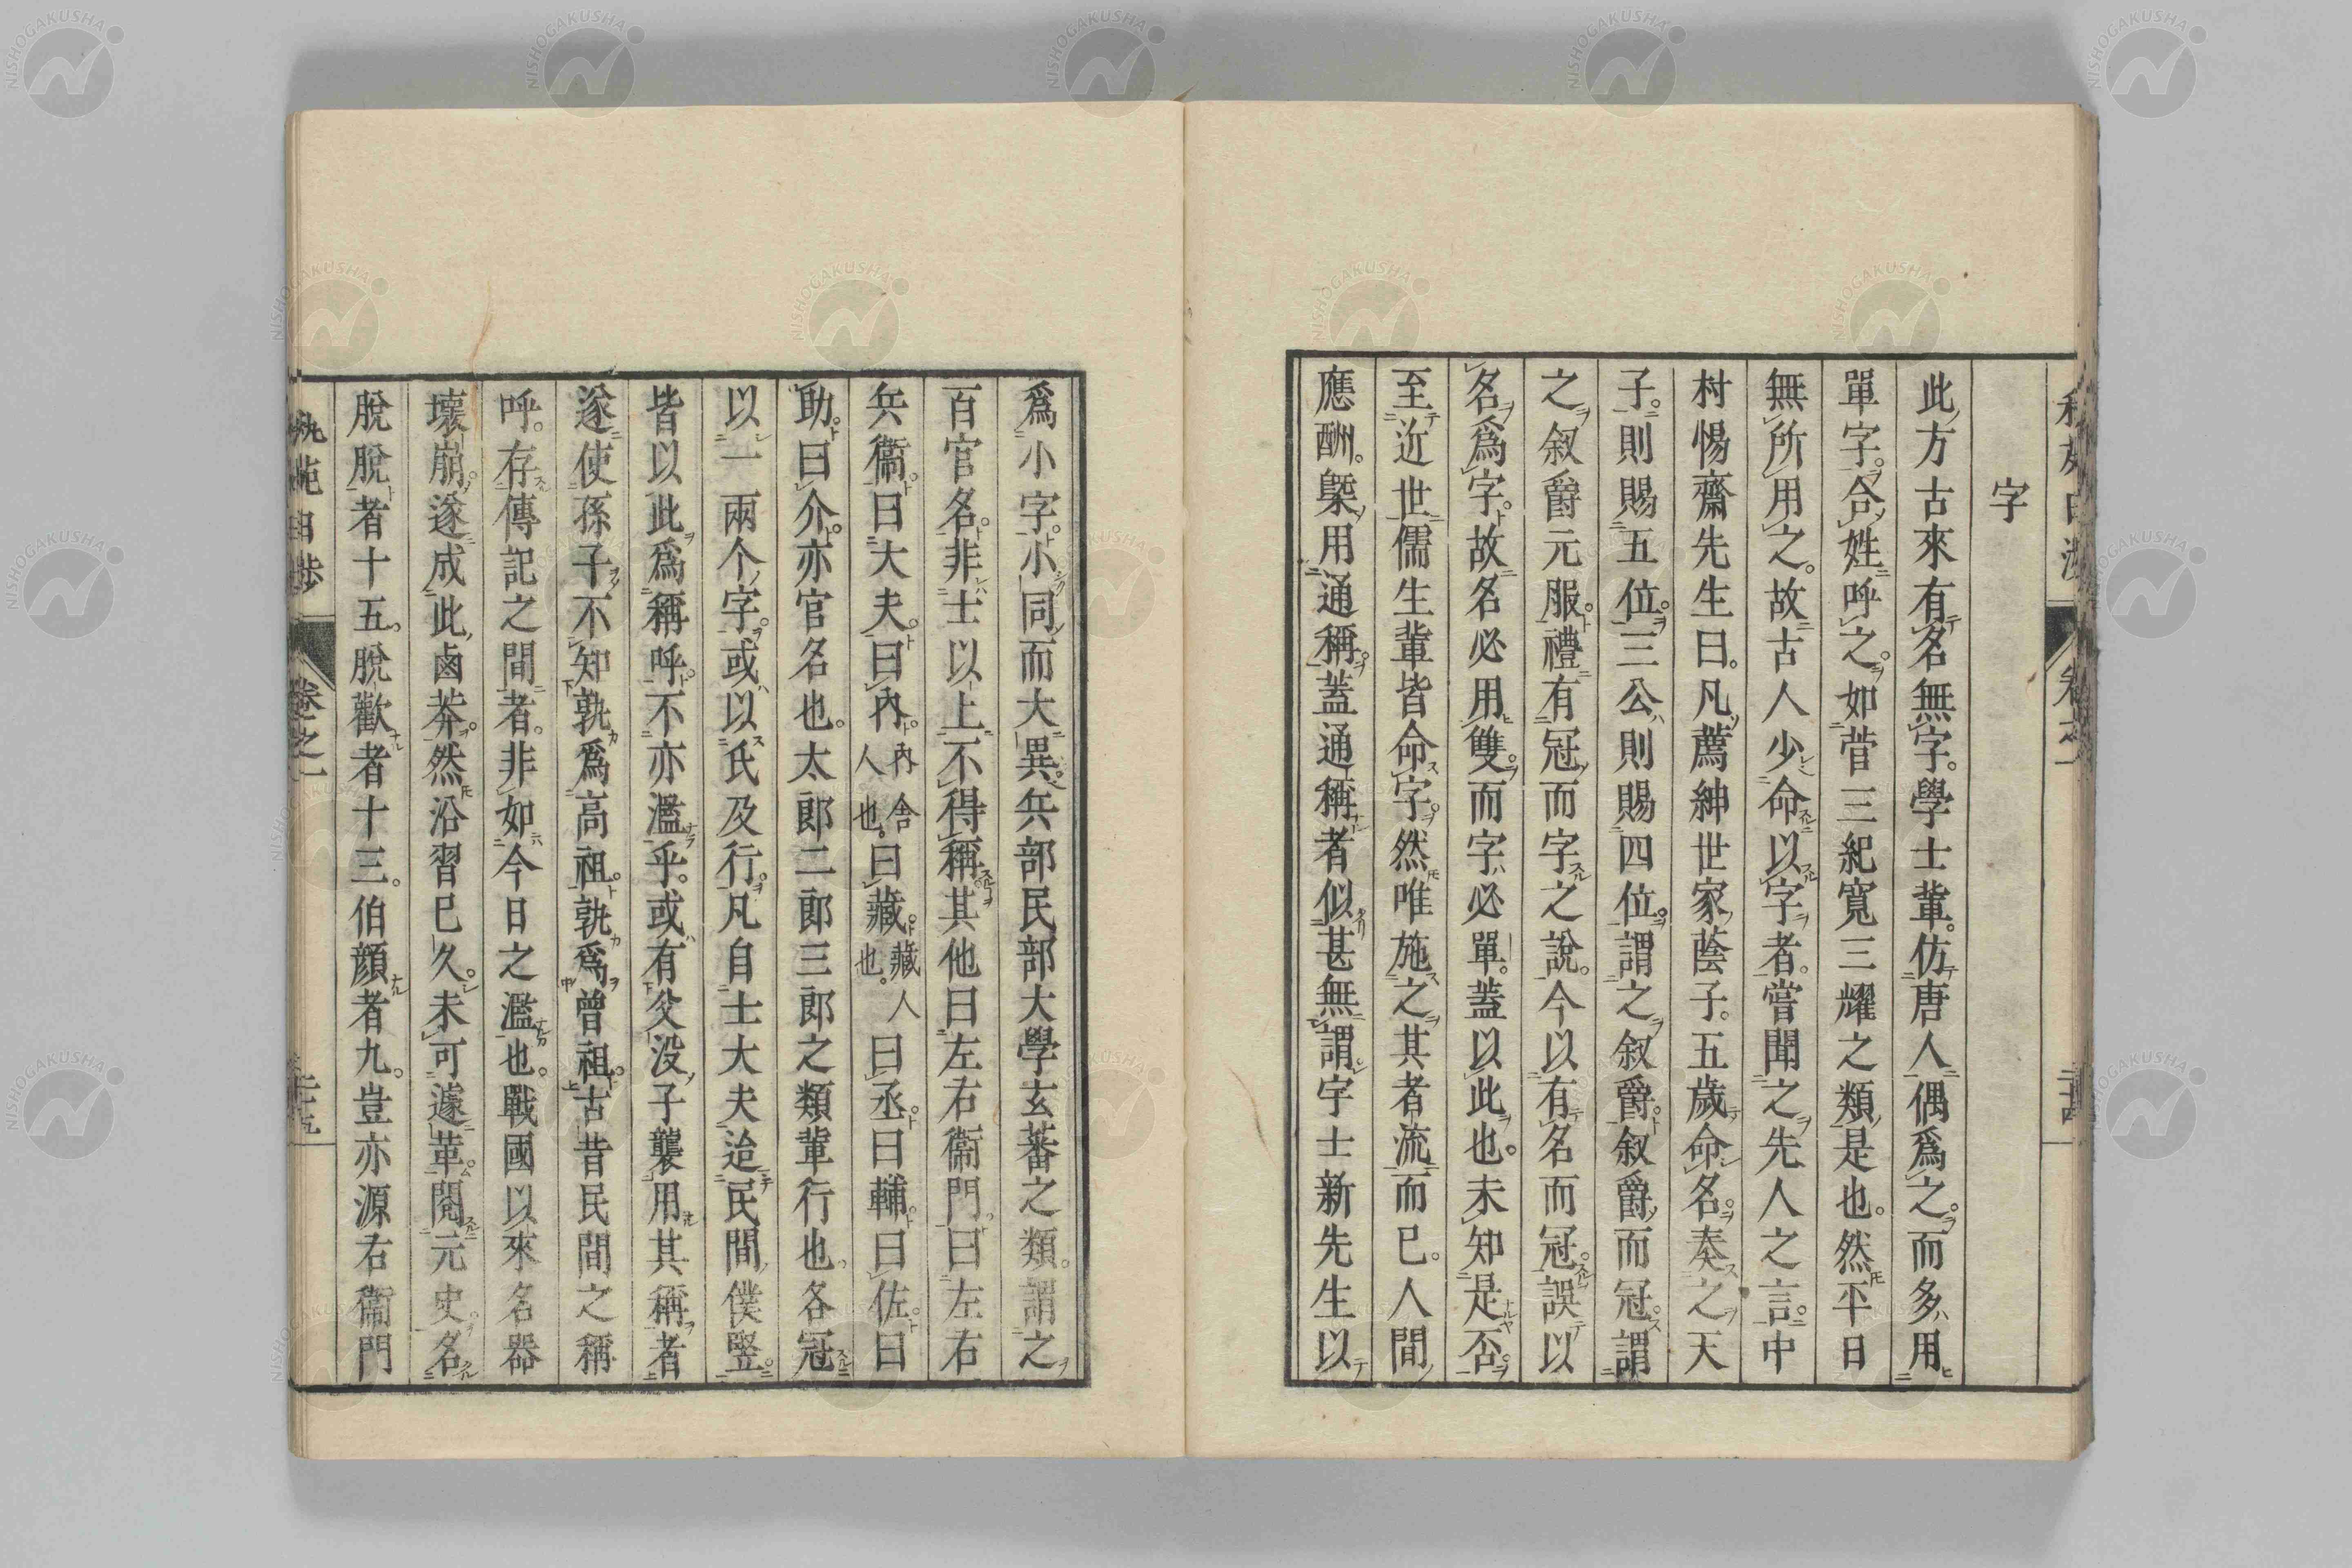 字
此方古來有名無字。學士輩。仿唐人偶爲之。而多用
單字。合姓呼之。如菅三紀寬三耀之類是也。然平日
無所用之。故古人少命以字者。嘗聞之先人之言。中
村惕齋先生曰。凡薦紳世家蔭子。五歲命名。奏之天
子。則賜五位。三公則賜四位。謂之叙爵。叙爵而冠。謂
之叙爵元服。禮有冠而字之說。今以有名而冠。誤以
名爲字。故名必用雙。而字必單。蓋以此也。未知是否
至近世儒生輩皆命字。然唯施之其者流而已。人間
應酬。槩用通稱。蓋通稱者似甚無謂。宇士新先生以
爲小字。小同而大異。兵部民部大學玄蕃之類。謂之
百官名。非士以上不得稱其他曰左右衞門。曰左右
兵衞。曰大夫。曰內。內舍人也。曰藏。藏人也。曰丞。曰輔。曰佐。曰
助。曰介。亦官名也。太郎二郎三郎之類輩行也。各冠
以一兩个字。或以氏及行。凡自士大夫迨民間僕豎。
皆以此爲稱呼。不亦濫乎。或有父沒子襲用其稱者
遂使孫子不知孰爲高祖。孰爲曾祖。古昔民間之稱
呼。存傳記之間者。非如今日之濫也。戰國以來名器
壞崩。遂成此鹵莽。然沿習已久。未可遽革。閱元史。名
脫脫者十五。脫歡者十三。伯顏者九。豈亦源右衞門
卷之一